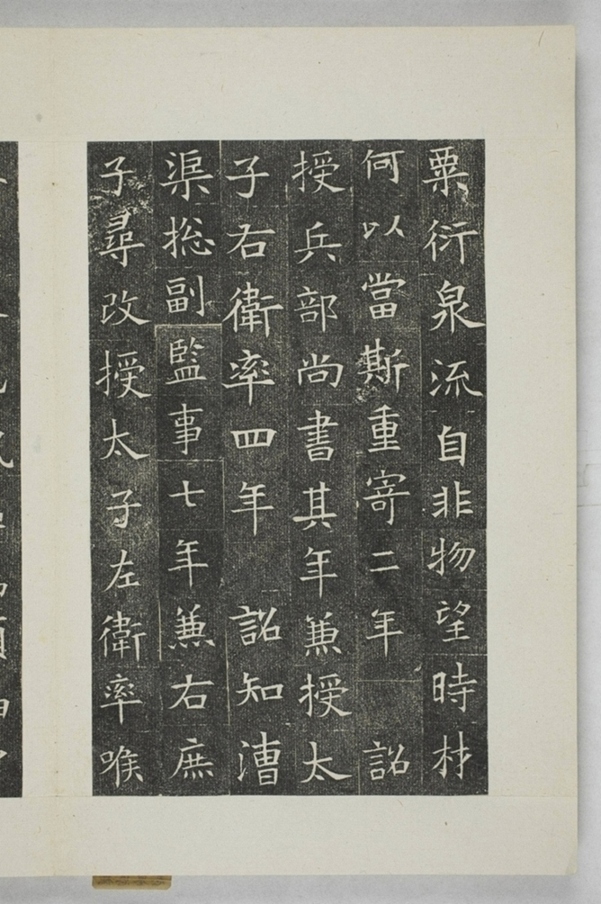 粟衍泉流自非物望時材
何以當斯重寄二年 詔
授兵部尚書其年兼授太
子右衛率四年 詔知漕
渠捴副監事七年兼右庶
子尋改授太子左衛率喉